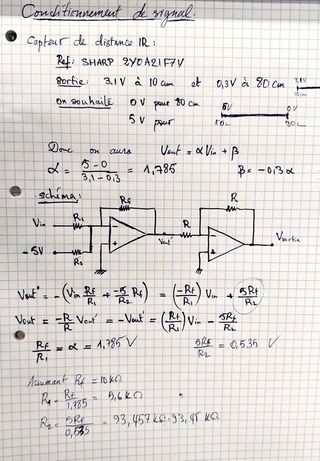 Conditionnement de signal.
Capteur de distance IR:
Ref: SHARP 2Y0A21F7V
Sortie: 3.1V à 10 cm et 0,3V à 80 cm
3.1V
10cm
on souhaite 0V pour 80 cm
5V pour
5V 0V
10cm 80cm
Donc on aura Vout = αVin + β
α = (5-0)/(3,1-0,3) = 1,785 β = -0,3α
schéma:
Rf R
Vin R1
R
-5V R2
Vout' Vsortie
Vout' = -(Vin Rf/R1 + -5/R2 Rf) = (-Rf/R1) Vin + 5Rf/R2
Vout = -R/R Vout' = -Vout' = (Rf/R1) Vin - 5Rf/R2
Rf/R1 = α = 1,785 V 5Rf/R2 = 0,535 V
Assumant Rf = 10kΩ
R1 = Rf/1,785 = 5,6kΩ
R2 = 5Rf/0,535 = 93,457kΩ